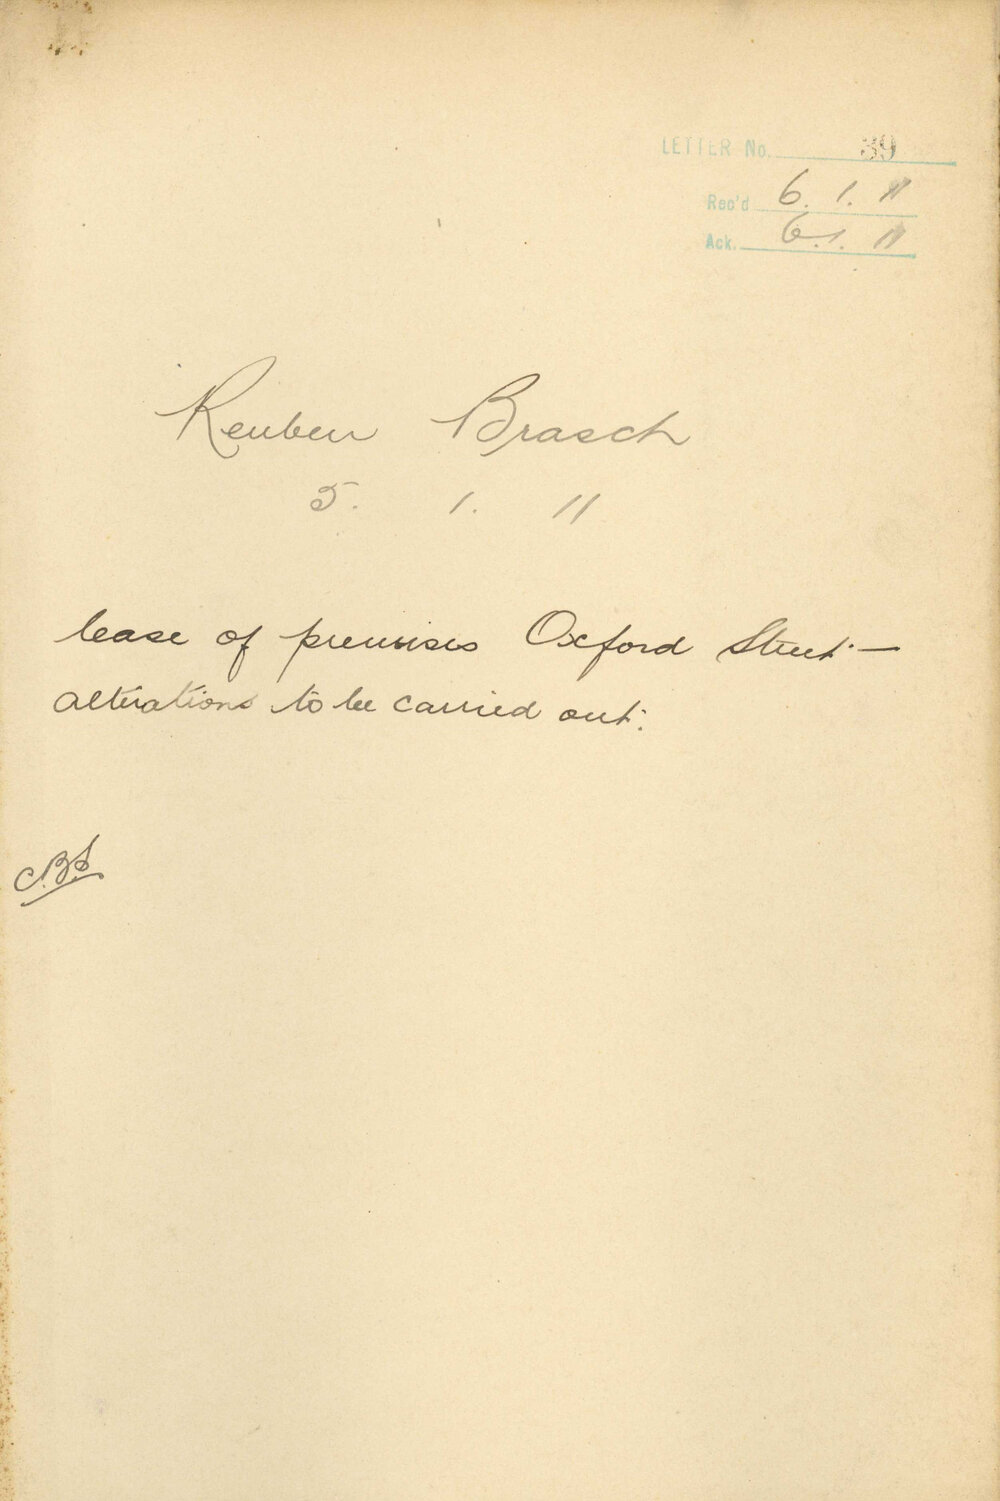 LETTER No. 39
Rec'd 6. 1. 11
Ack. 6. 1. 11
Reuben Brasch
5. 1. 11
lease of premises Oxford Street —
alterations to be carried out.